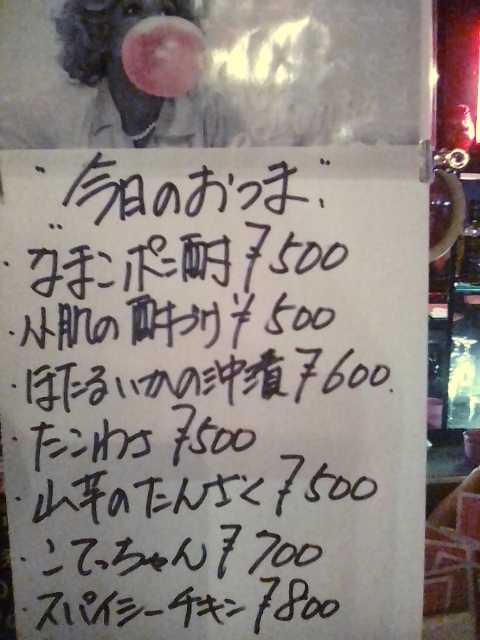 "今日のおつま"
・なまこポン酢 ¥500
・小肌の酢づけ ¥500
・ほたるいかの沖漬 ¥600
・たこわさ ¥500
・山芋のたんざく ¥500
・こてっちゃん ¥700
・スパイシーチキン ¥800